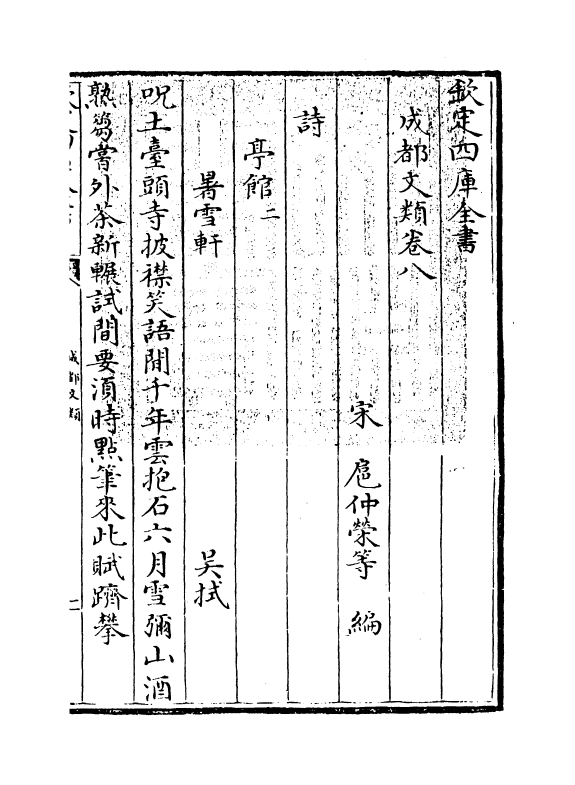 欽定四庫全書
成都文類卷八
宋 扈仲榮等 編
詩
亭館二
暑雪軒 吳拭
呪土臺頭寺披襟笑語間千年雲抱石六月雪彌山酒
熟篘嘗外茶新輾試間要須時點筆來此賦躋攀
成都文類